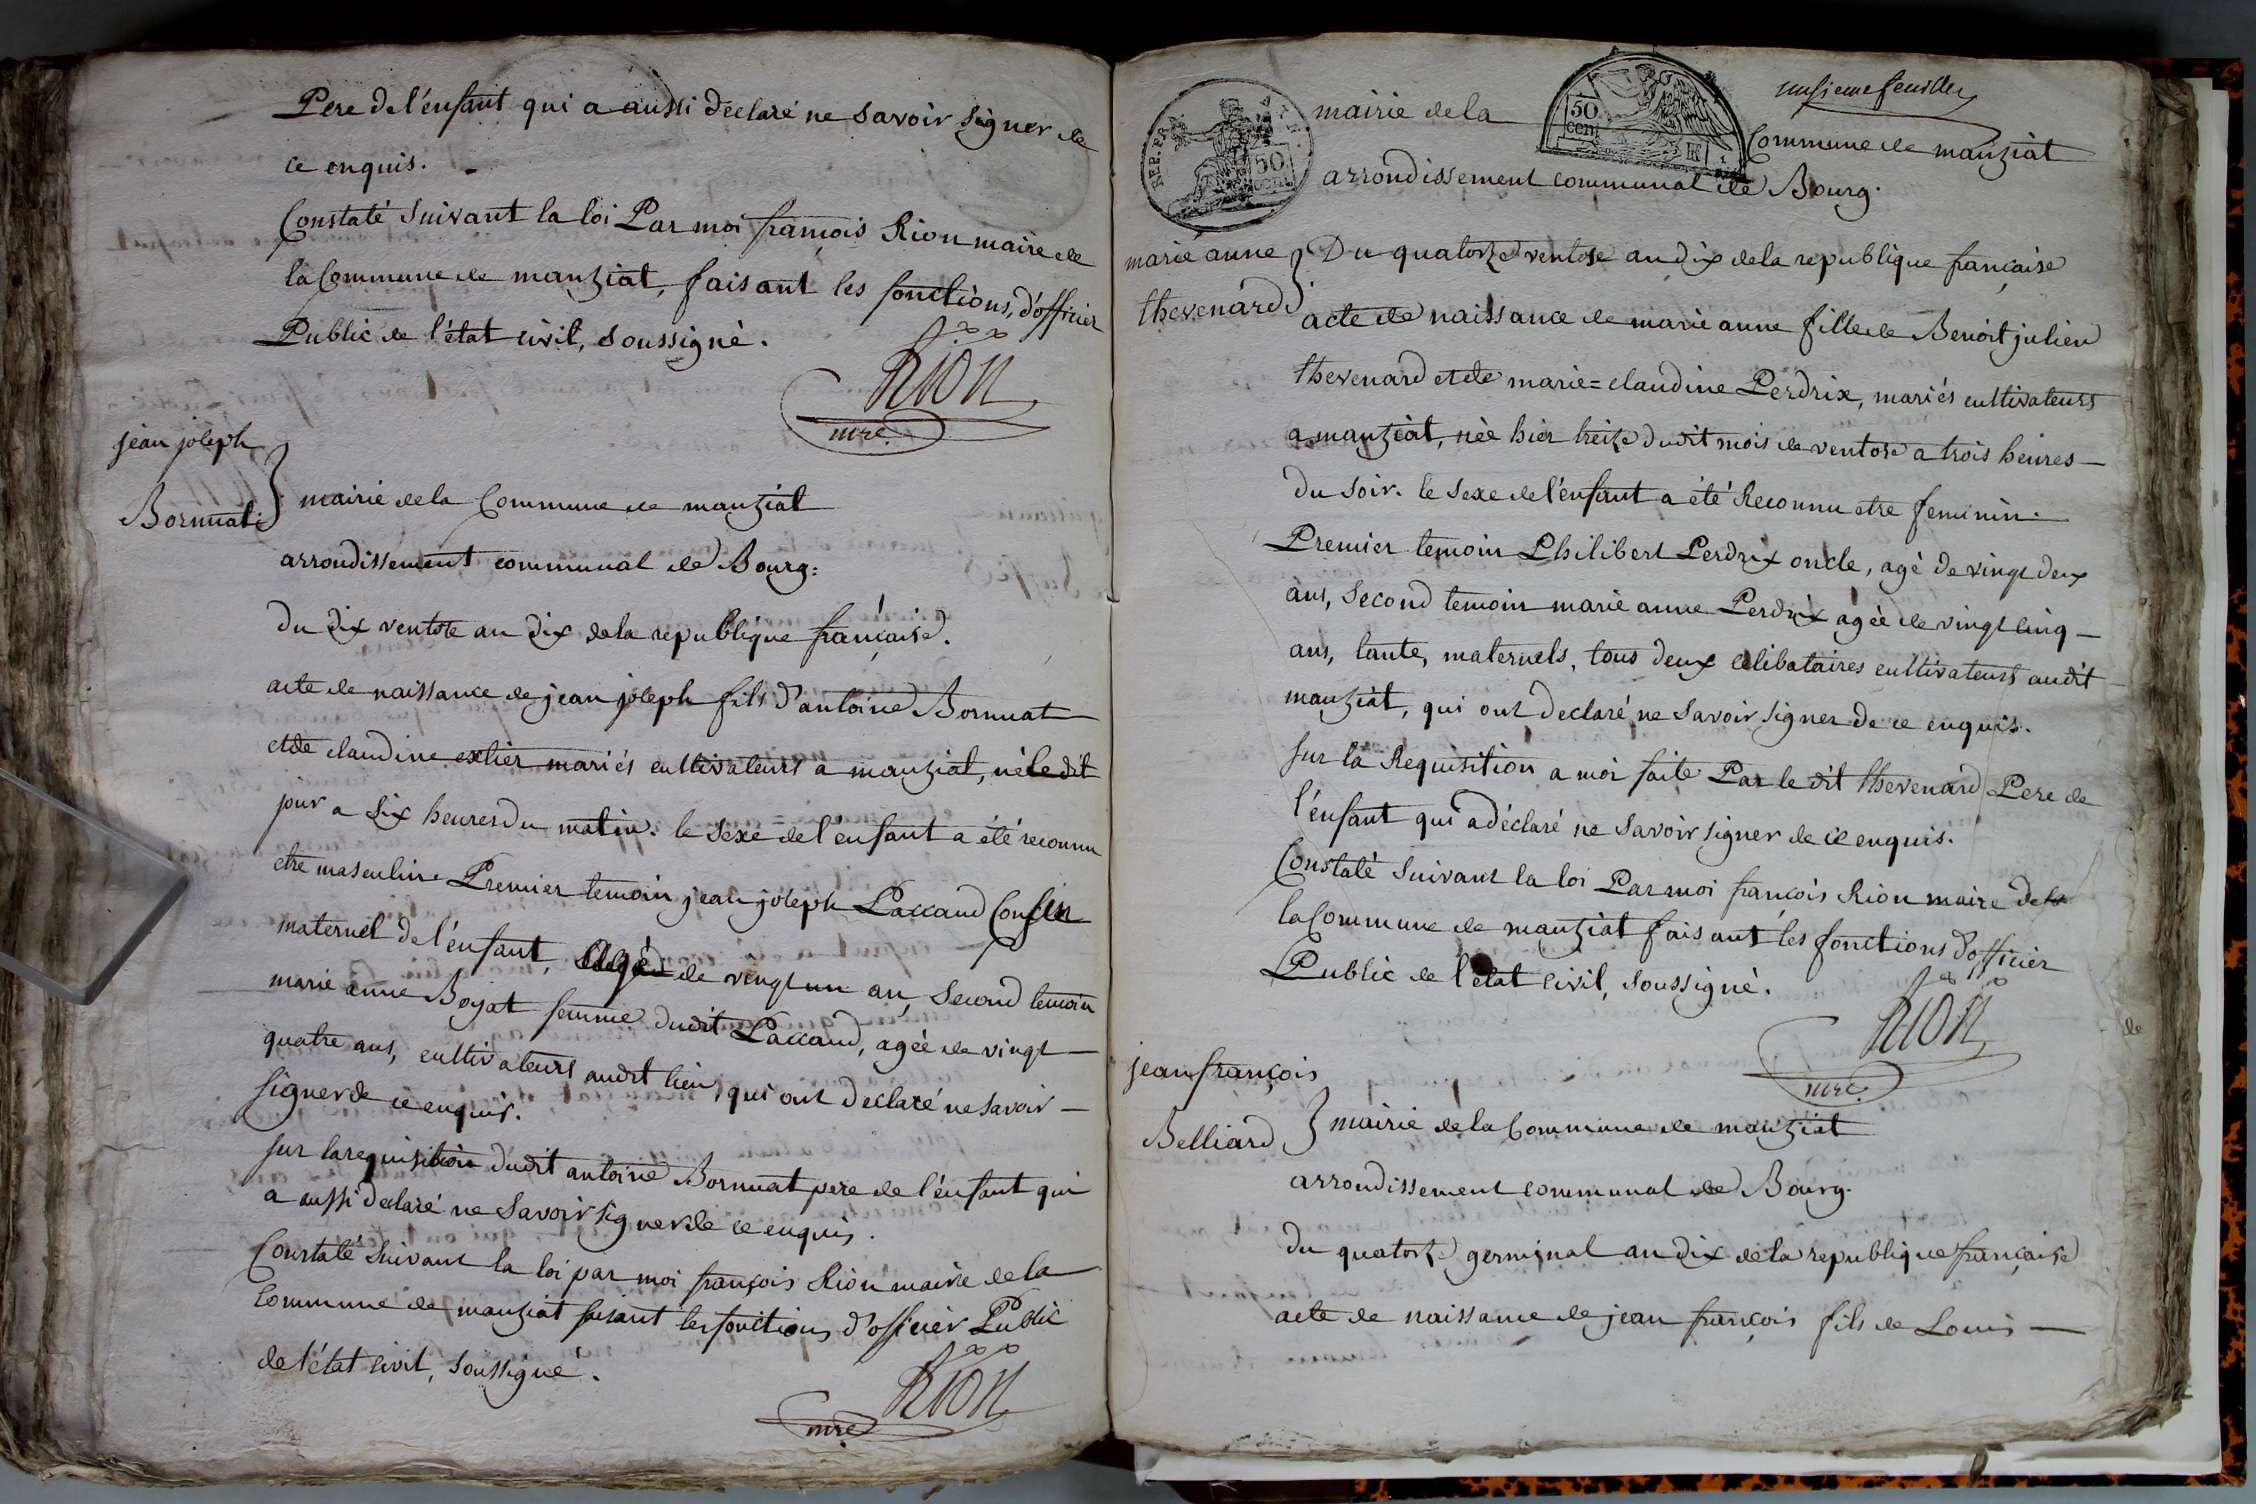 Pere de l'énfant qui a aussi déclaré ne savoir signer de
ce enquis.
Constaté suivant la loi Par moi françois Rion maire de
la Commune de manziat, faisant les fonctions, d'officier
Public de l'état civil, soussigné.
Rion
mre
jean joseph
Bornuat
mairie de la Commune de manziat
arrondissement communal de Bourg:
du dix ventose an dix de la republique française.
acte de naissance de jean joseph fils d'antoine Bornuat
et de claudine extier mariés cultivateurs a manziat, né le dit
jour a six heures du matin. le sexe de l'enfant a été reconnu
etre masculin. Premier temoin jean joseph Laccaud Cousin
maternel de l'énfant, agé de vingt un an, second temoin
marie anne Boyat femme dudit Laccaud, agée de vingt
quatre ans, cultivateurs audit lieu, qui ont declaré ne savoir
signer de ce enquis.
sur la requisition dudit antoine Bornuat pere de l'énfant qui
a aussi declaré ne savoir signer de ce enquis.
Constaté suivant la loi par moi françois Rion maire de la
Commune de manziat faisant les fonctions d'officier Public
de l'état civil, soussigné.
Rion
mre
REP. FRA
50
cen
50
cent
onsieme feuillet
mairie de la
Commune de manziat
arrondissement communal de Bourg.
marie anne
thevenard
Du quatorze ventose an dix de la republique française
acte de naissance de marie anne fille de Benoit julien
thevenard et de marie=claudine Perdrix, mariés cultivateurs
a manziat, née hier treize dudit mois de ventose a trois heures
du soir. le sexe de l'énfant a été Reconnu etre feminin.
Premier temoin Philibert Perdrix oncle, agé de vingt deux
ans, second temoin marie anne Perdrix agée de vingt cinq
ans, tante, maternels, tous deux celibataires cultivateurs audit
manziat, qui ont declaré ne savoir signer de ce enquis.
sur la Requisition a moi faite Par le dit thevenard Pere de
l'énfant qui a déclaré ne savoir signer de ce enquis.
Constaté suivant la loi Par moi françois Rion maire de
la Commune de manziat faisant les fonctions d'officier
Public de l'état civil, soussigné.
Rion
mre
jean françois
Belliard
mairie de la Commune de manziat
arrondissement communal de Bourg.
du quatorze germinal an dix de la republique française
acte de naissance de jean françois fils de Louis
de